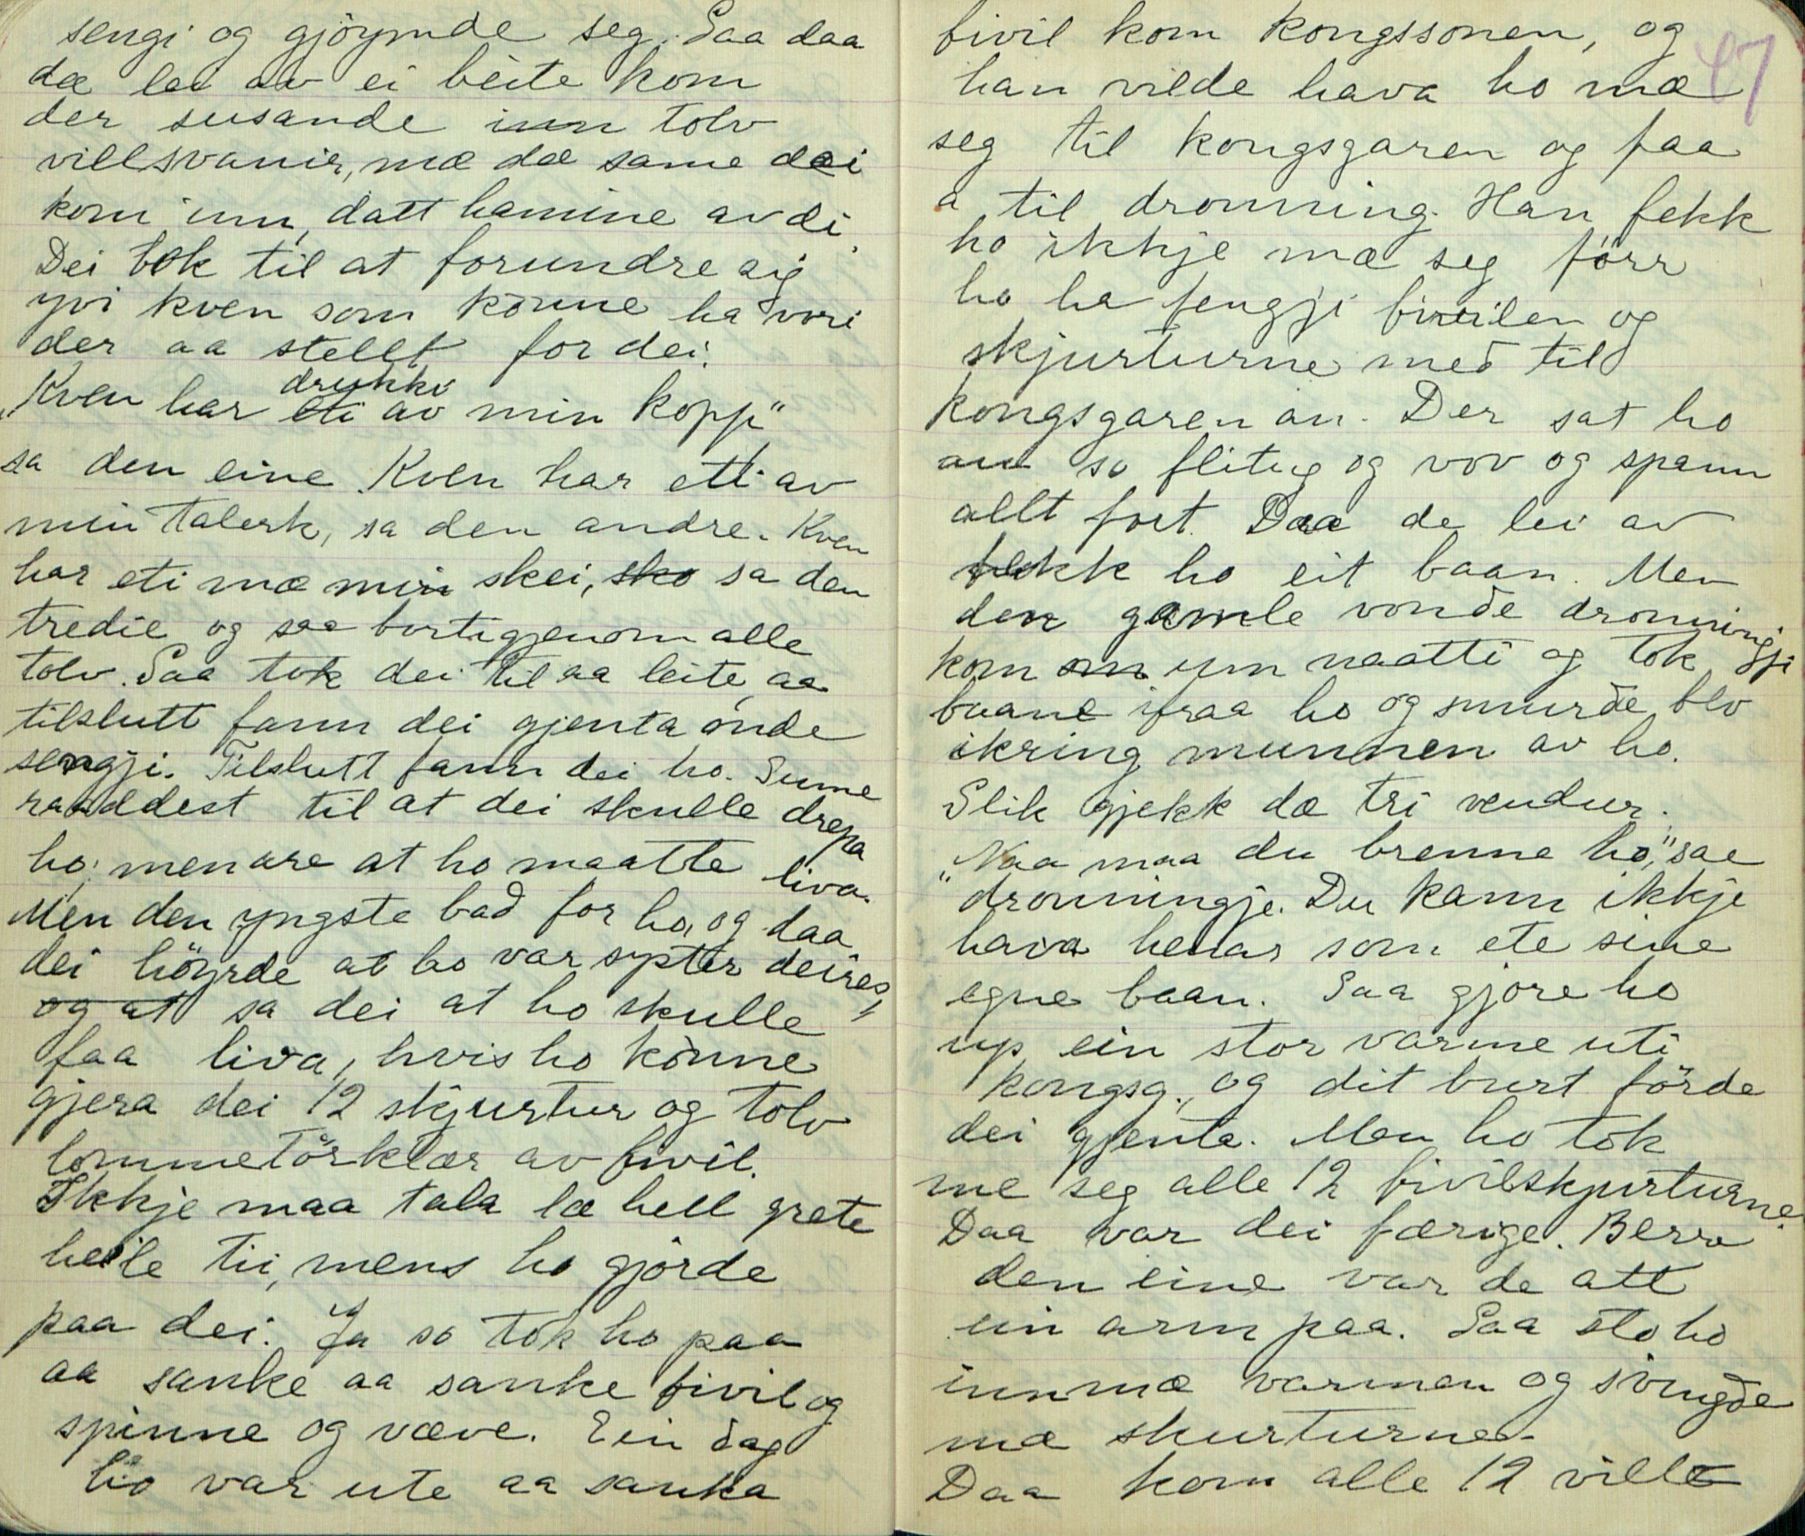 sengi og gjöymde seg. Saa daa
dæ lei av ei beite kom
der susande inn tolv
villsvanir, mæ dæ same dei
kom inn, datt hamine av di.
Dei tok til at forundre sig
yvi kven som könne ha vori
der aa stellt for dei.
„Kven har drukki av min kopp"
sa den eine. Kven har eti av
min talerk, sa den andre. Kven
har eti mæ min skei, sa den
tredie og saa bortigjenom alle
tolv. Saa tok dei til aa leite, aa
tilslutt fann dei gjenta önde
sengji. Tilslutt fann dei ho. Sume
raaddest til at dei skulle drepa
ho, men are at ho maatte liva.
Men den yngste bad for ho, og daa
dei höyrde at ho var syster deires,
og at sa dei at ho skulle
faa liva, hvis ho könne
gjera dei 12 skjurtur og tolv
lommetörklær av fivil.
Ikkje maa tala læ hell grete
heile tii, mens ho gjörde
paa dei. Ja so tok ho paa
aa sanke aa sanke fivil og
spinne og væve. Ein dag
ho var ute aa sanka
fivil kom kongssonen, og
47
han vilde hava ho mæ
seg til kongsgaren og faa
a til dronning. Han fekk
ho ikkje mæ seg förr
ho ha fengji fivilen og
skjurturne med til
kongsgaren an. Der sat ho
au so flitug og vov og spann
allt fort. Daa de lei av
fekk ho eit baan. Men
den gamle vonde dronningji
kom um naatti og tok
baane ifraa ho og smurde blo
ikring munnen av ho.
Slik gjekk dæ tri vendur.
„Naa maa du brenne ho," sae
"dronningje. Du kann ikkje
hava henar som ete sine
egne baan. Saa gjore ho
up ein stor varme uti
kongsg., og dit burt förde
dei gjenta. Men ho tok
me seg alle 12 fivilskjurturne.
Daa var dei færige. Berre
den eine var de att
ein arm paa. Saa sto ho
innmæ varmen og svingde
mæ skurturne.
Daa kom alle 12 ville